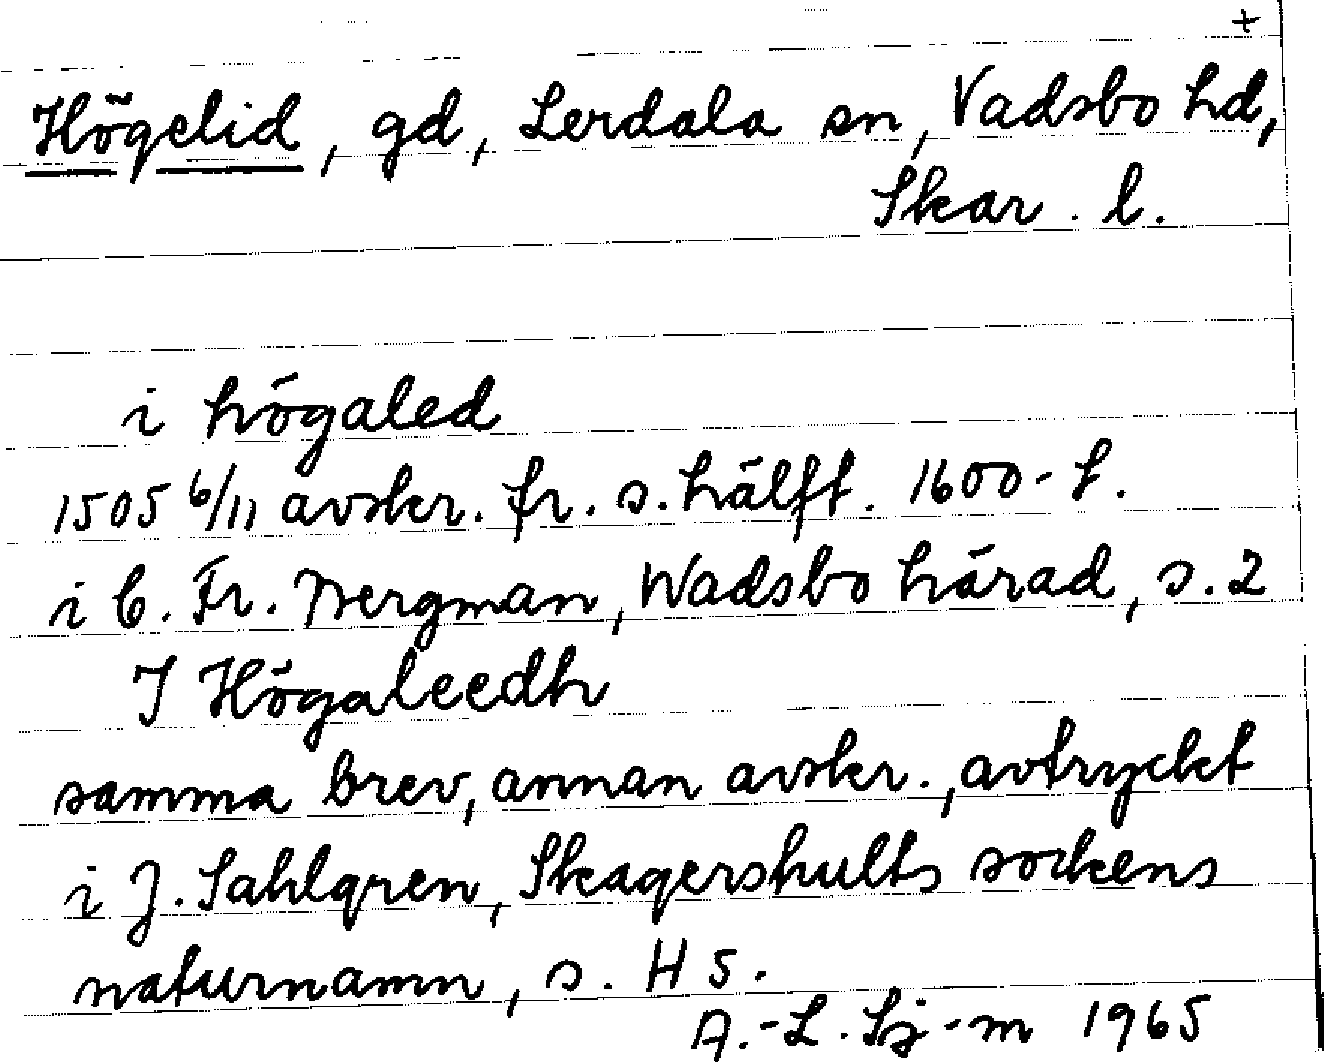 +
Högelid, gd, Lerdala sn, Vadsbo hd,
Skar. l.
i högaled
1505 6/11 avskr. fr. s. hälft. 1600-t.
i C. Fr. Bergman, Wadsbo härad, s. 2
I Högaleedh
samma brev, annan avskr., avtryckt
i J. Sahlgren, Skagershults sockens
naturnamn, s. H 5.
A.-L. Sj-m 1965